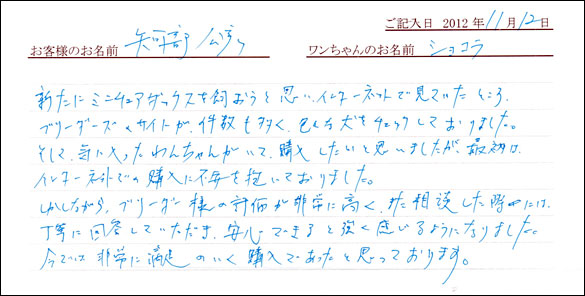 ご記入日 2012年11月12日
お客様のお名前 矢可部 ワンちゃんのお名前 ショコラ
新たにミニチュアダックスを飼おうと思い、インターネットで見ていたところ、
ブリーダーズサイトが、件数も多く、色んな犬をチェックしておりました。
そして、気に入ったわんちゃんがいて、購入したいと思いましたが、最初は、
インターネットでの購入に不安を抱いておりました。
しかしながら、ブリーダー様の評価が非常に高く、また相談した際には、
丁寧に回答していただき、安心できると強く感じるようになりました。
今では非常に満足のいく購入であったと思っております。